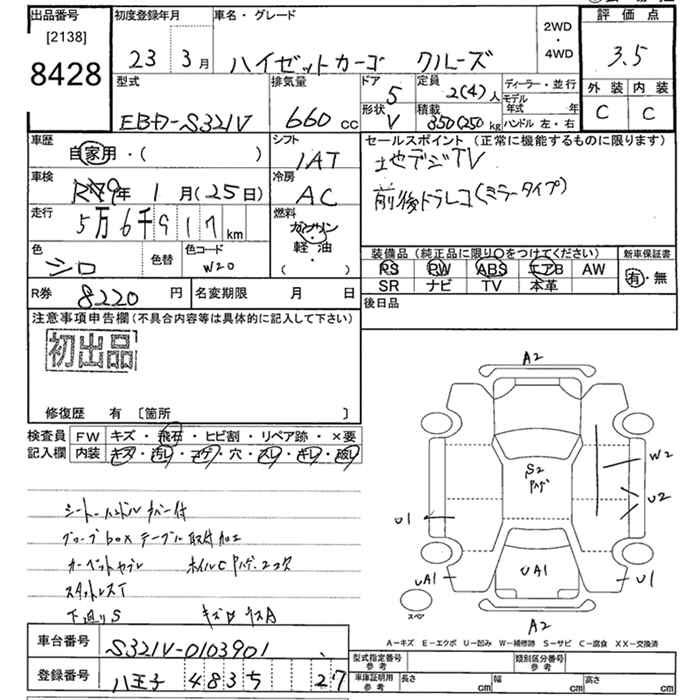 出品番号
[2138]
8428
初度登録年月
23 3月
車名・グレード
ハイゼットカーゴ クルーズ
2WD
・
4WD
評価点
3.5
外装 内装
C C
型式
EBD-S321V
排気量
660 cc
ドア
5
形状
V
定員
2(4)人
積載
350(250)kg
ディーラー・並行
モデル年式 年
ハンドル 左・右
車歴
自家用・( )
シフト
IAT
セールスポイント (正常に機能するものに限ります)
地デジTV
前後ドラレコ(ミラータイプ)
車検
年 1月(25日)
冷房
AC
走行
5万6千917km
燃料
ガソリン
・
軽油
( )
色
シロ
色替
色コード
W20
装備品(純正品に限り○をつけてください)
PS PW ABS エアB AW
SR ナビ TV 本革
新車保証書
有・無
R券 8220円
名変期限 月 日
後日品
注意事項申告欄(不具合内容等は具体的に記入して下さい)
初出品
修復歴 有 [箇所 ]
検査員
記入欄
FW キズ・飛石・ヒビ割・リペア跡・×要
内装 キズ・汚レ・コゲ・穴・スレ・キレ・破レ
シートハンドルカバー付
グローブboxテーブル取付加工
スタットレスT
下廻りS
A2
S2
W2
U2
U1
UA1
UA1
U1
A2
スペア
A-キズ E-エクボ U-凹み W-補修跡 S-サビ C-腐食 XX-交換済
車台番号 S321V-0103901
登録番号 八王子 483 5 27
型式指定番号 参考
類別区分番号 参考
車庫証明用 参考
長さ cm 幅 cm 高さ cm